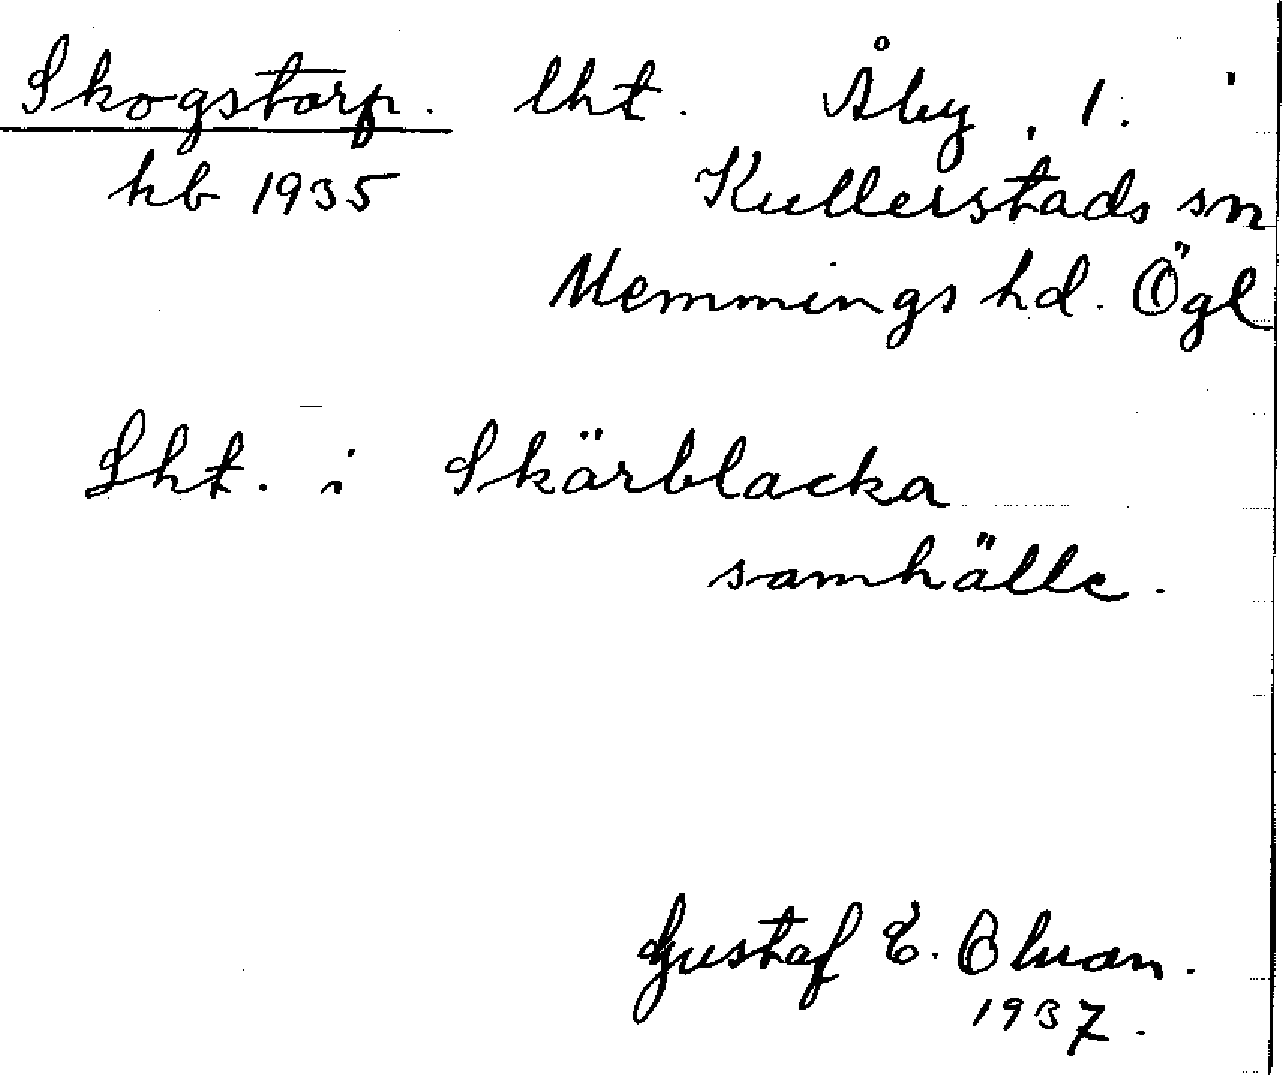 Skogstorp. lht. Åby, 1.
kb 1935 Kullerstads sn
Memmings hd. Ögl
Lht. i Skärblacka
samhälle.
Gustaf E.
1937.